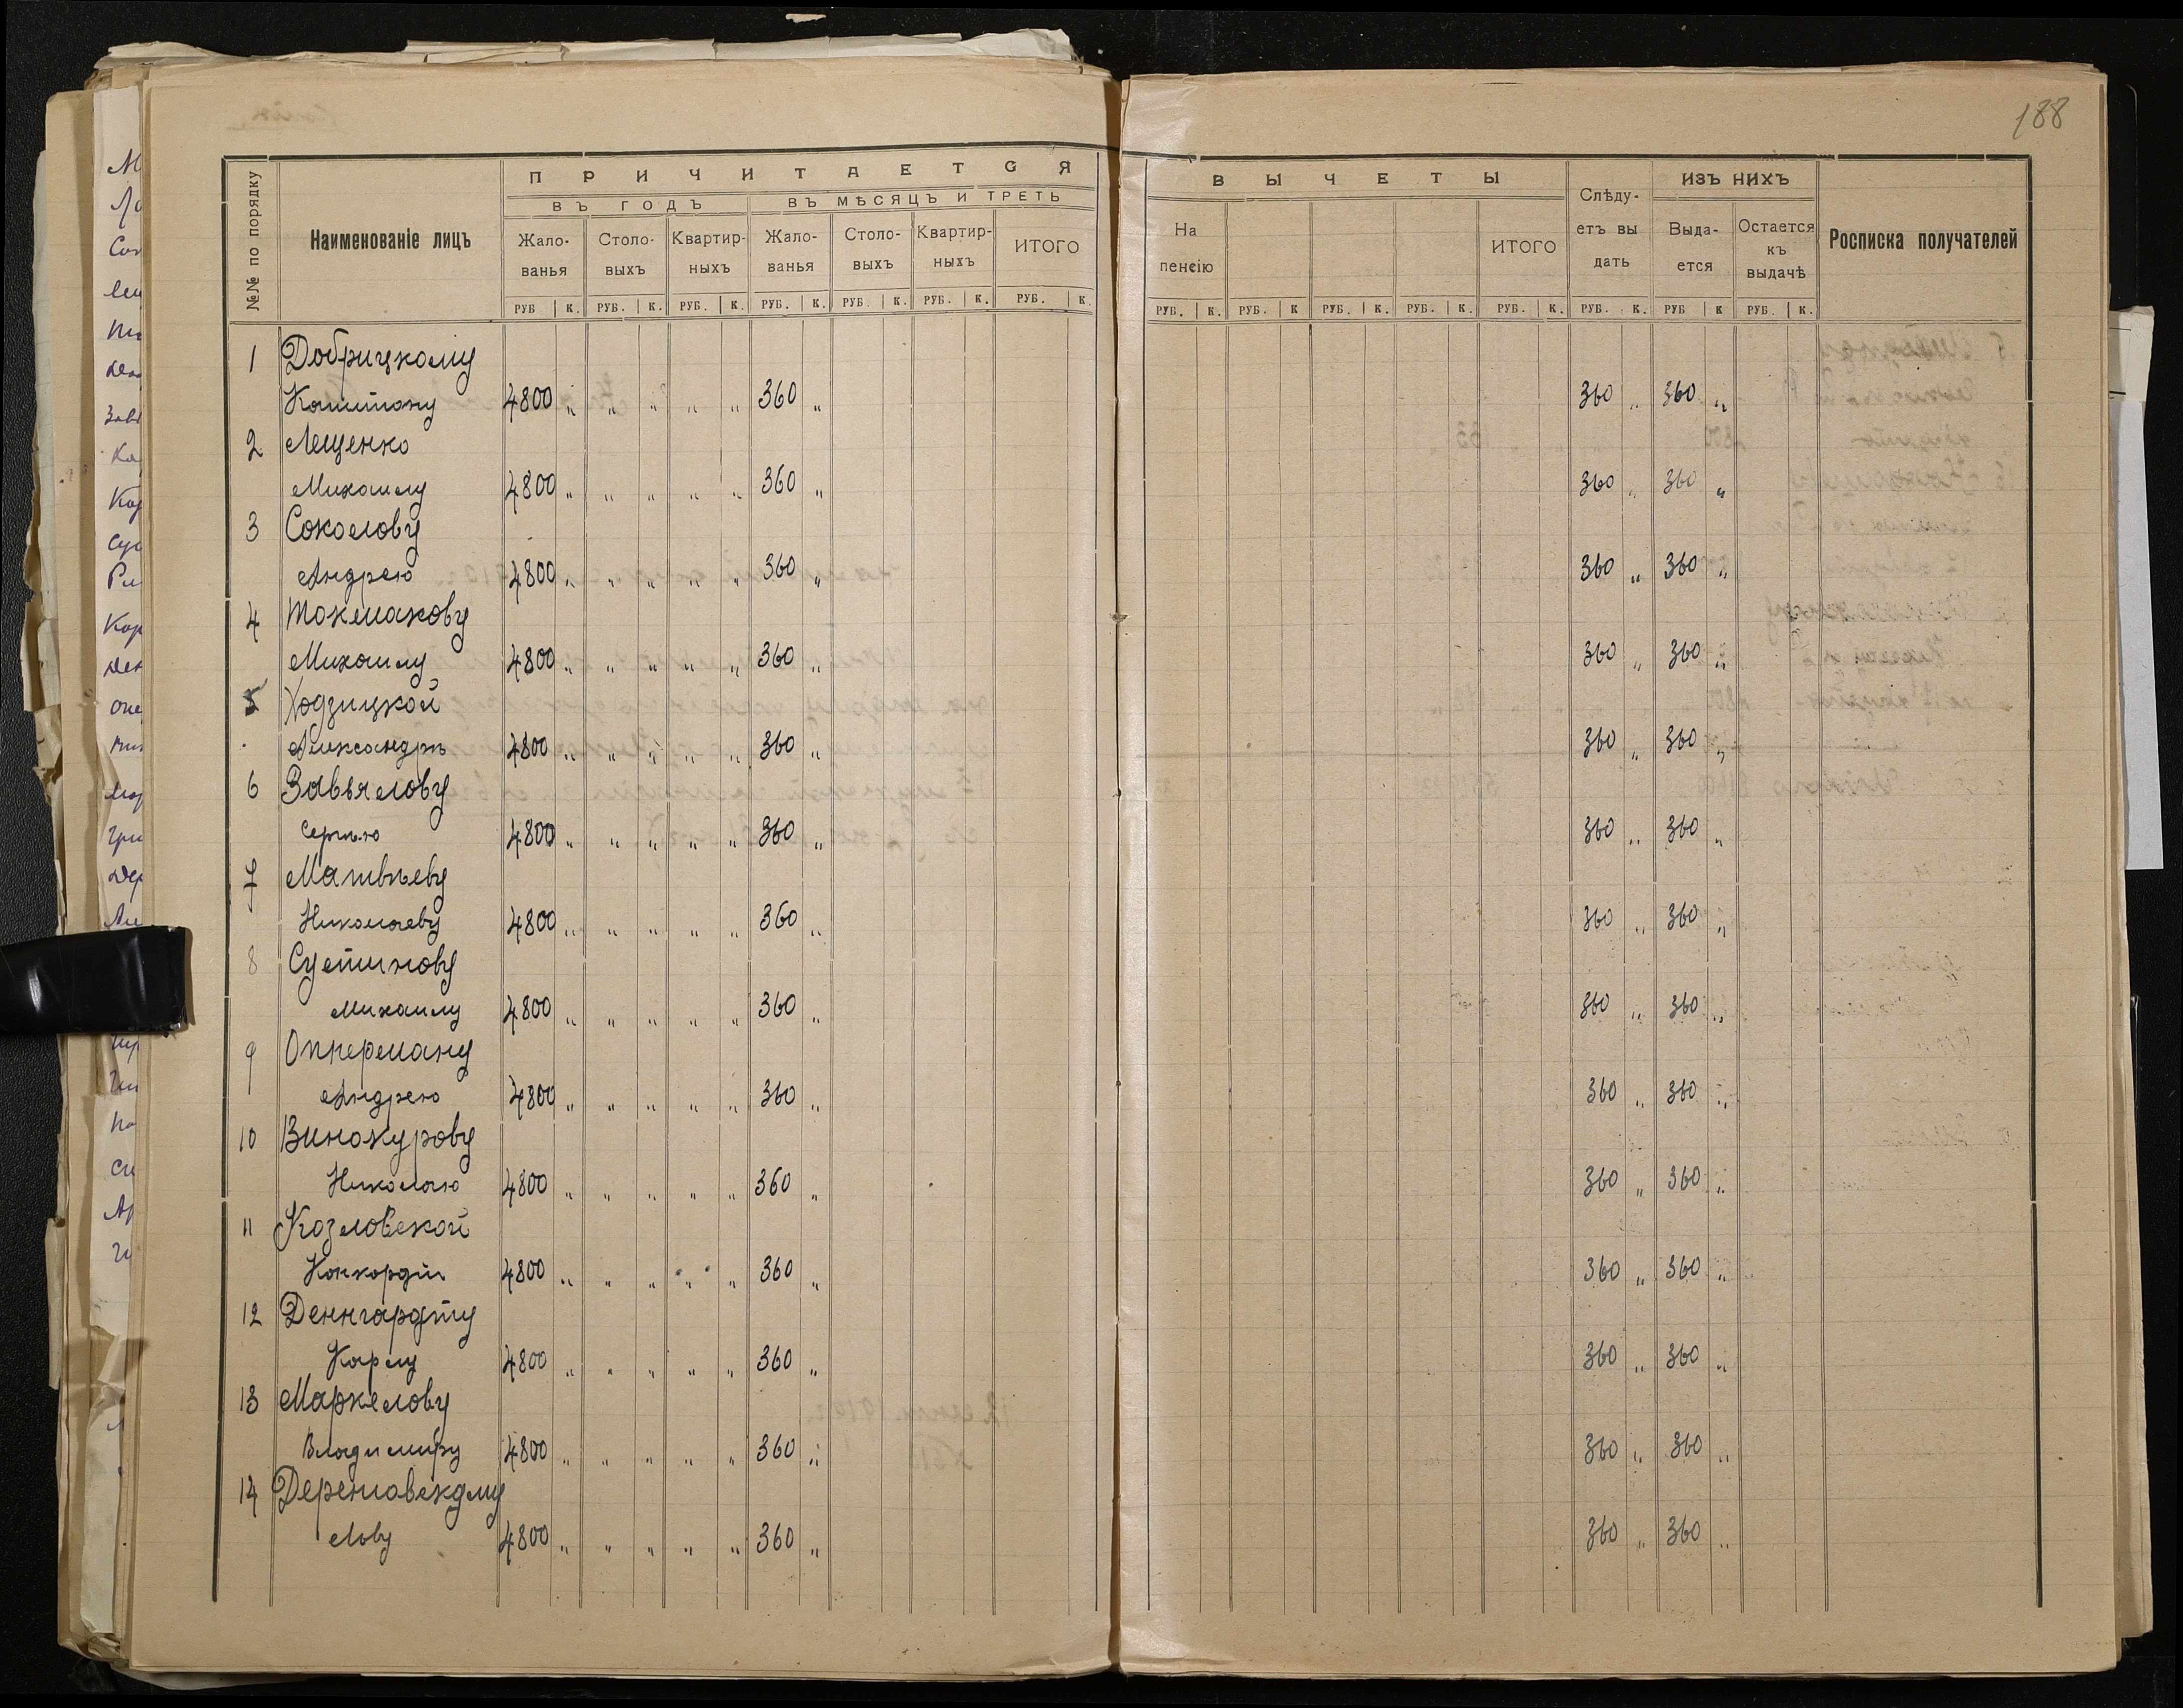 188
ПРИЧИТАЕТСЯ
ВЪ ГОДЪ ВЪ МѢСЯЦЪ И ТРЕТЬ
№№ по порядку Наименованіе лицъ Жало-ванья Столо-выхъ Квартир-ныхъ Жало-ванья Столо-выхъ Квартир-ныхъ ИТОГО
РУБ К. РУБ. К. РУБ. К. РУБ. К. РУБ. К. РУБ. К. РУБ. К.
ВЫЧЕТЫ ИЗЪ НИХЪ
На пенсію ИТОГО Слѣду-етъ вы дать Выда-ется Остается къ выдачѣ Росписка получателей
РУБ. К. РУБ. К РУБ. К. РУБ. К. РУБ. К. РУБ. К. РУБ К РУБ. К.
1 Добрицкому
Капитону 4800 „ „ „ „ „ 360 „ 360 „ 360 „
2 Лещенко
Михаилу 4800 „ „ „ „ „ 360 „ 360 „ 360 „
3 Соколову
Андрею 4800 „ „ „ „ „ 360 „ 360 „ 360 „
4 Токмакову
Михаилу 4800 „ „ „ „ „ 360 „ 360 „ 360 „
5 Ходзицкой
Александрѣ 4800 „ „ „ „ „ 360 „ 360 „ 360 „
6 Завьялову
Сергѣю 4800 „ „ „ „ „ 360 „ 360 „ 360 „
7 Матвѣеву
Николаеву 4800 „ „ „ „ „ 360 „ 360 „ 360 „
8 Суетинову
Михаилу 4800 „ „ „ „ „ 360 „ 360 „ 360 „
9 Опперману
Андрею 4800 „ „ „ „ „ 360 „ 360 „ 360 „
10 Винокурову
Николаю 4800 „ „ „ „ „ 360 „ 360 „ 360 „
11 Козловской
Конкордіи 4800 „ „ „ „ „ 360 „ 360 „ 360 „
12 Деннгардту
Карлу 4800 „ „ „ „ „ 360 „ 360 „ 360 „
13 Маркелову
Владимиру 4800 „ „ „ „ „ 360 „ 360 „ 360 „
14
4800 „ „ „ „ „ 360 „ 360 „ 360 „